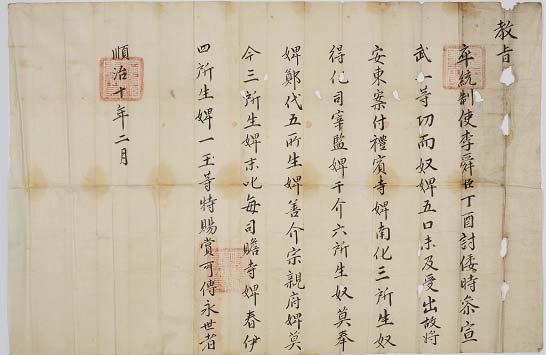 教旨
卒統制使李舜臣丁酉討倭時叅宣
武一等切而奴婢五口未及受出故將
安東案付禮賓寺婢南化三所生奴
得化司宰監婢干介六所生奴莫奉
婢鄭代五所生婢善介宗親府婢莫
今三所生婢末叱每司贍寺婢春伊
四所生婢一玉等特賜賞可傳永世者
順治十年二月